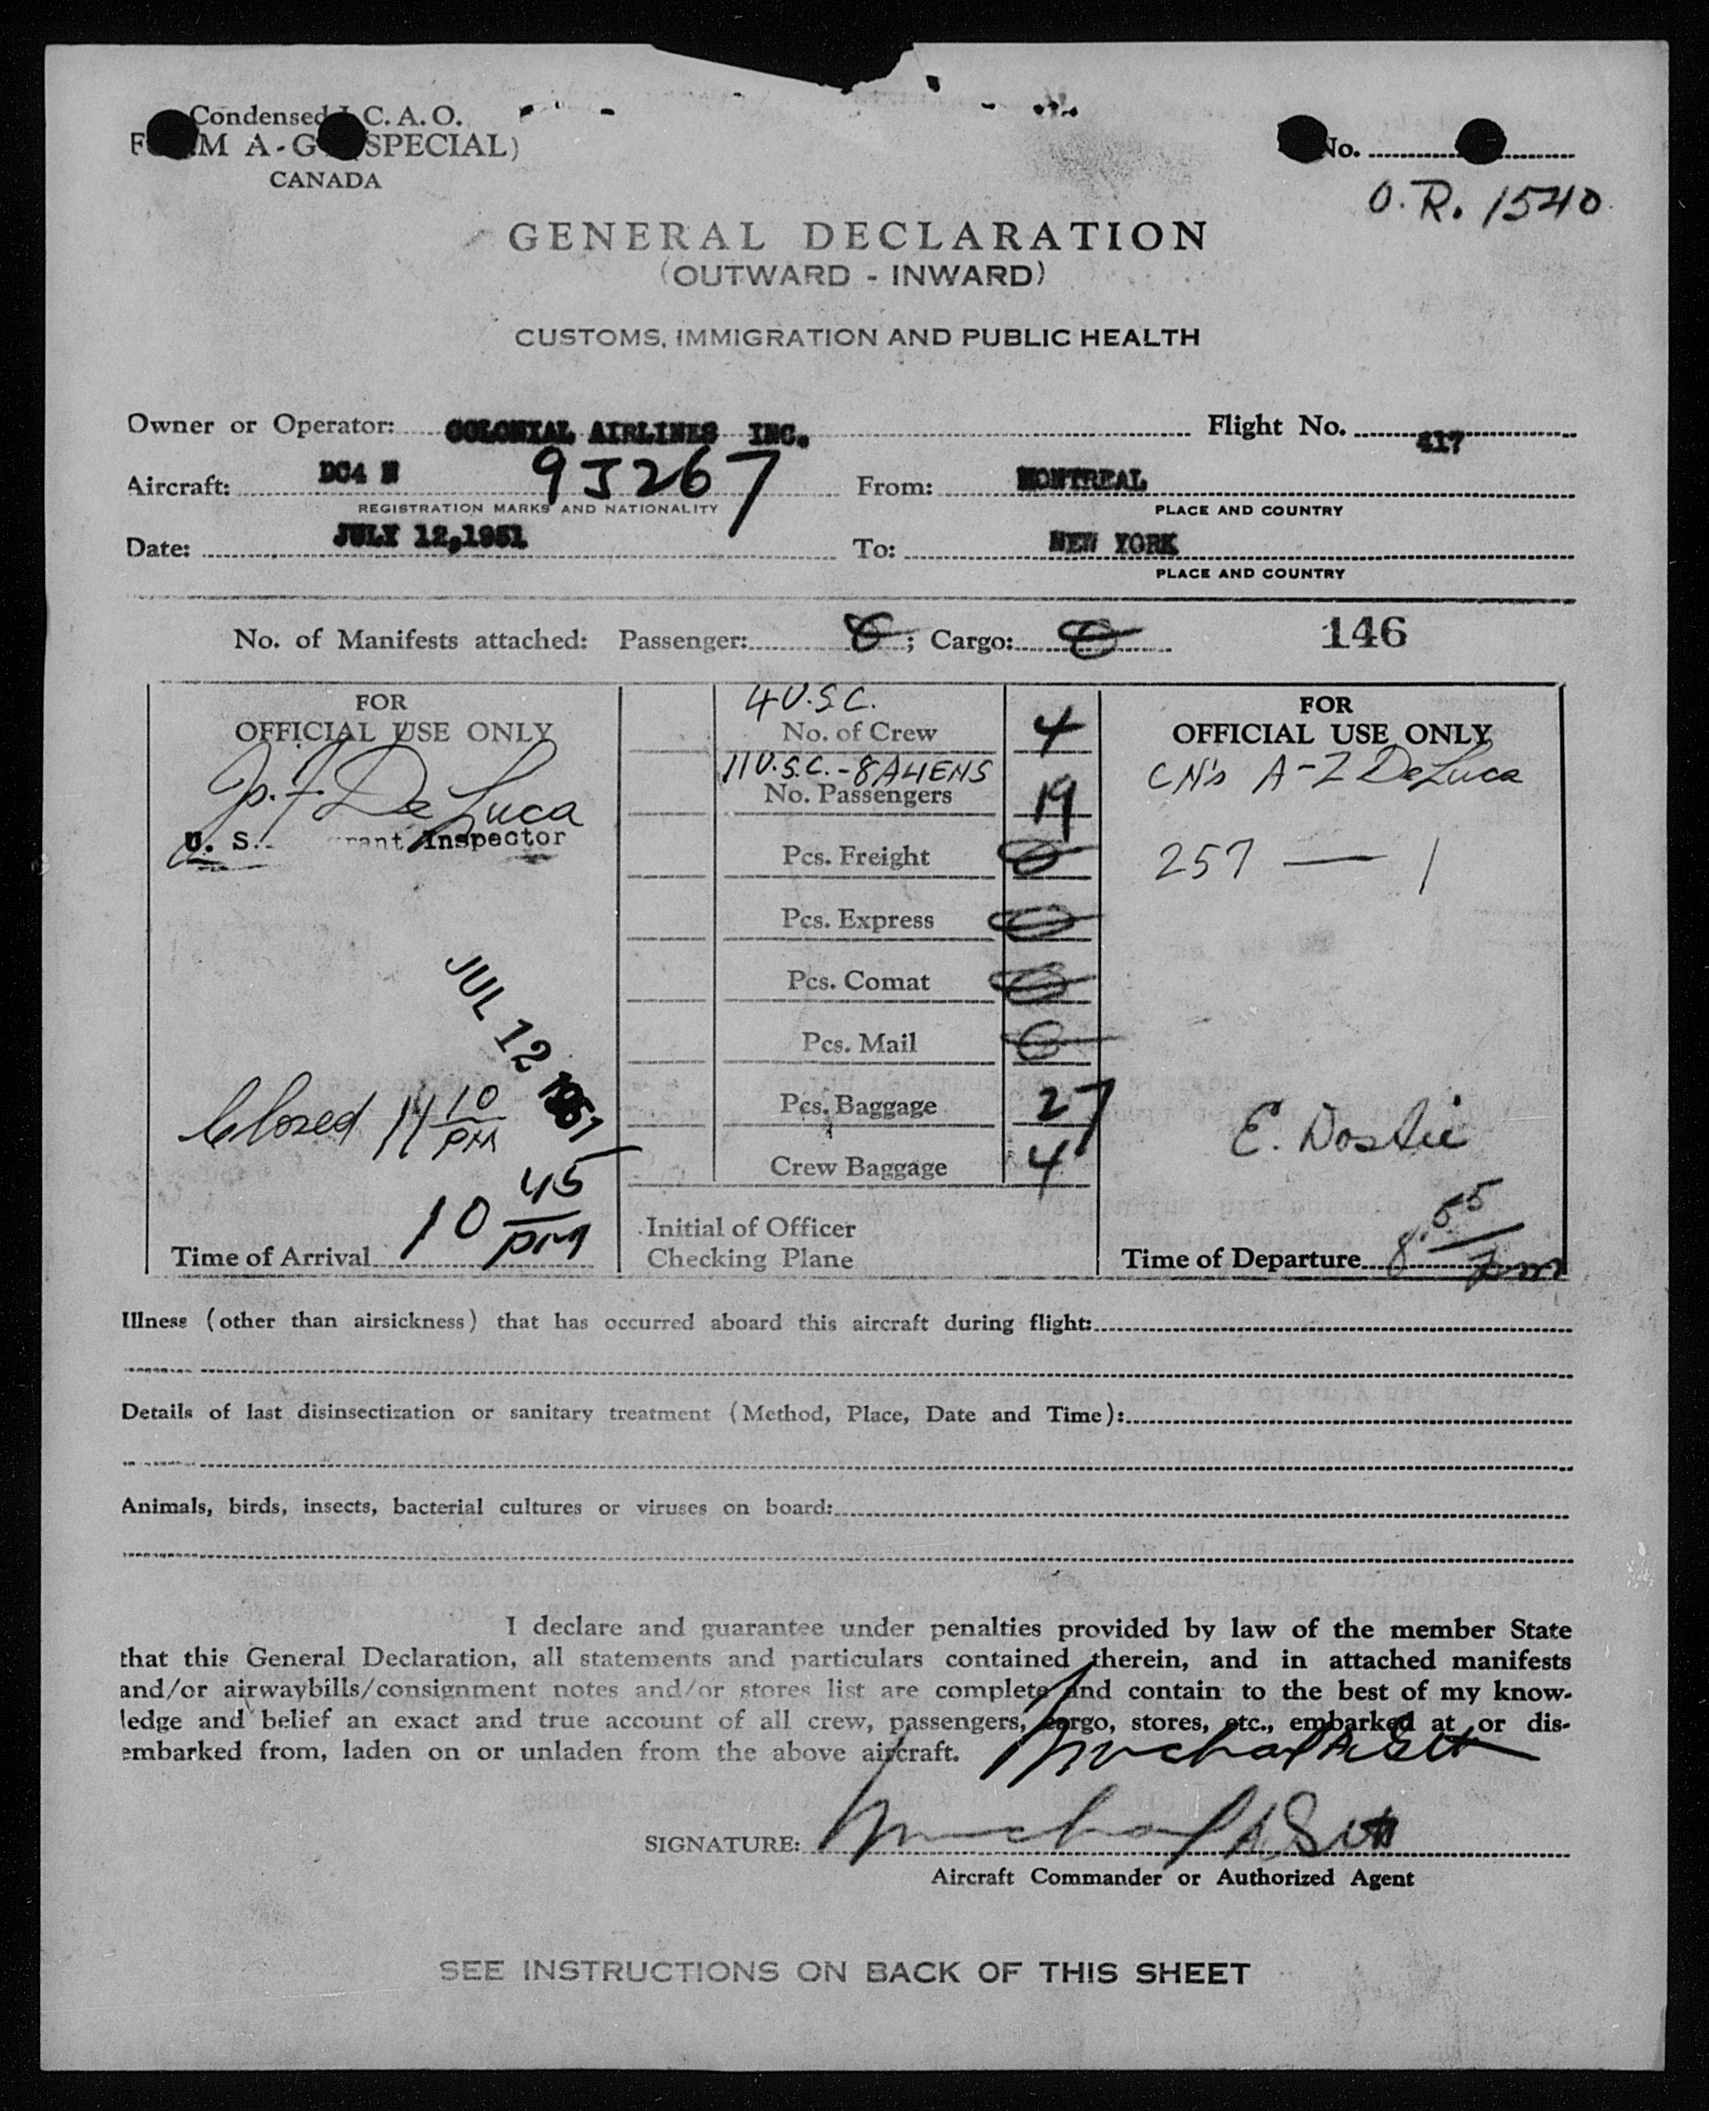 Condensed I.C.A.O.
M A-G (SPECIAL)
CANADA
No.
O.R. 1540
GENERAL DECLARATION
(OUTWARD - INWARD)
CUSTOMS, IMMIGRATION AND PUBLIC HEALTH
Owner or Operator: COLONIAL AIRLINES INC. Flight No. 417
Aircraft: DC4 N 9J267 From: MONTREAL
REGISTRATION MARKS AND NATIONALITY PLACE AND COUNTRY
Date: JULY 12,1951 To: NEW YORK
PLACE AND COUNTRY
No. of Manifests attached: Passenger: 0; Cargo: 0 146
FOR
OFFICIAL USE ONLY
De Luca
U. S. Inspector
JUL 12 1951
Closed 11 10 PM
10 45 PM
Time of Arrival
4 U.S.C.
No. of Crew 4
11 U.S.C. - 8 ALIENS
No. Passengers 19
Pcs. Freight 0
Pcs. Express 0
Pcs. Comat 0
Pcs. Mail 0
Pcs. Baggage 27
Crew Baggage 4
Initial of Officer
Checking Plane
FOR
OFFICIAL USE ONLY
CN's A-Z DeLuca
257 — 1
E. Dostie
Time of Departure 8:55 pm
Illness (other than airsickness) that has occurred aboard this aircraft during flight:
Details of last disinsectization or sanitary treatment (Method, Place, Date and Time):
Animals, birds, insects, bacterial cultures or viruses on board:
I declare and guarantee under penalties provided by law of the member State
that this General Declaration, all statements and particulars contained therein, and in attached manifests
and/or airwaybills/consignment notes and/or stores list are complete and contain to the best of my know-
ledge and belief an exact and true account of all crew, passengers, cargo, stores, etc., embarked at or dis-
embarked from, laden on or unladen from the above aircraft.
SIGNATURE:
Aircraft Commander or Authorized Agent
SEE INSTRUCTIONS ON BACK OF THIS SHEET